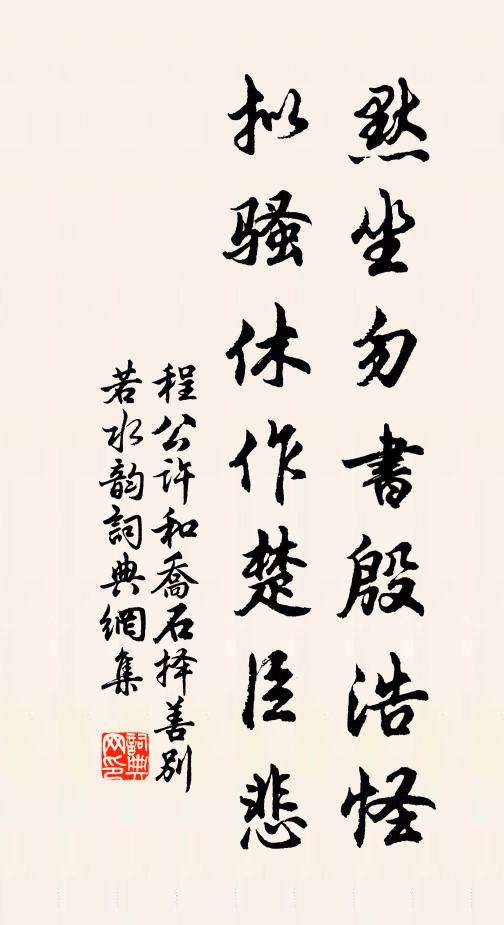 默坐勿書殷浩怪
拟骚休作楚臣悲
程公许和喬石择善别
若水韵詞典網集
詞典网印